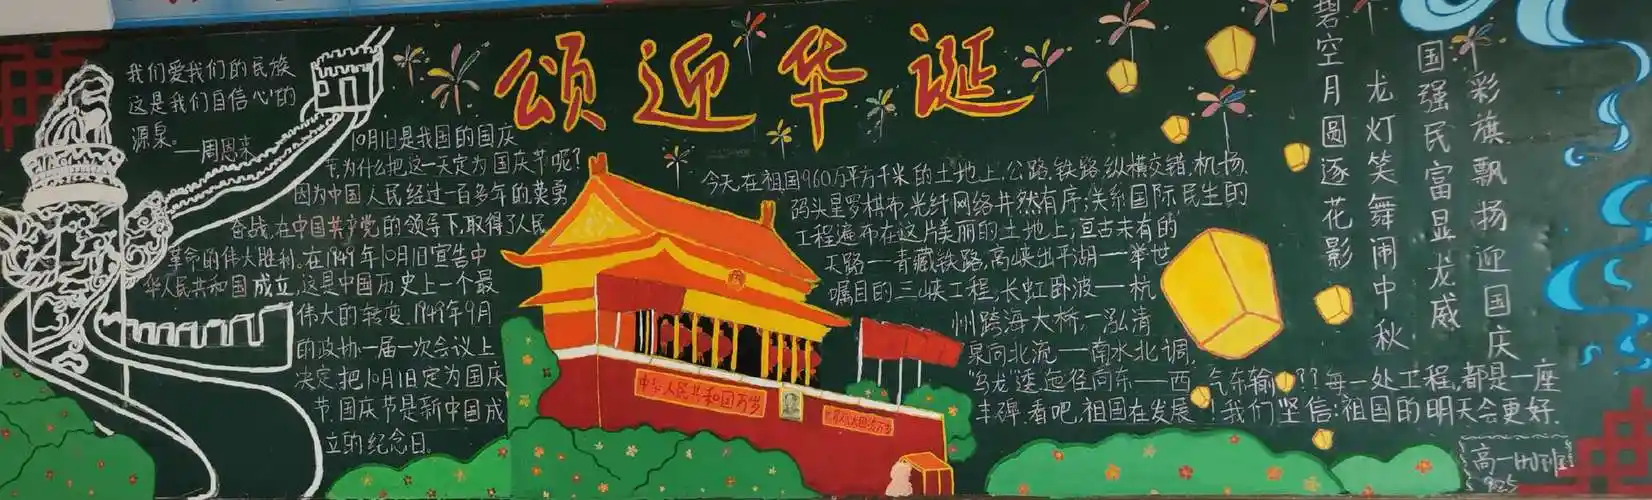 颂迎华诞
我们爱我们的民族
这是我们自信心的
源泉。——周恩来
10月1日是我国的国庆
节,为什么把这一天定为国庆节呢?
因为中国人民经过一百多年的英勇
奋战,在中国共产党的领导下,取得了人民
革命的伟大胜利。在1949年10月1日宣告中
华人民共和国成立,这是中国历史上一个最
伟大的转变.1949年9月
的政协一届一次会议上
决定把10月1日定为国庆
节.国庆节是新中国成
立的纪念日。
中华人民共和国万岁
今天在祖国960万平方千米的土地上,公路,铁路,纵横交错,机场,
码头星罗棋布,光纤网络井然有序;关系国际民生的
工程遍布在这片美丽的土地上;亘古未有的
天路——青藏铁路,高峡出平湖——举世
瞩目的三峡工程,长虹卧波——杭
州跨海大桥,一泓清
泉向北流——南水北调,
"乌龙"逶迤径向东——西气东输??每一处工程,都是一座
丰碑.看吧,祖国在发展!我们坚信:祖国的明天会更好.
碧空月圆逐花影
龙灯笑舞闹中秋
国强民富显龙威
彩旗飘扬迎国庆
高一 班
925